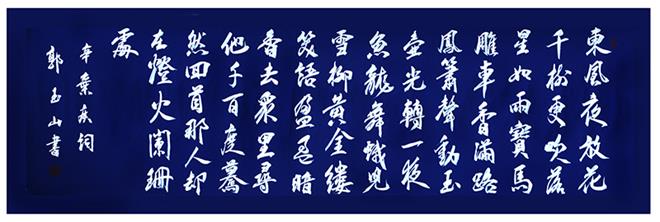 東風夜放花
千樹更吹落
星如雨寶馬
雕車香滿路
鳳簫聲動玉
壺光轉一夜
魚龍舞蛾兒
雪柳黃金縷
笑語盈盈暗
香去眾里尋
他千百度驀
然回首那人却
在燈火闌珊
處
辛棄疾词
郭玉山書